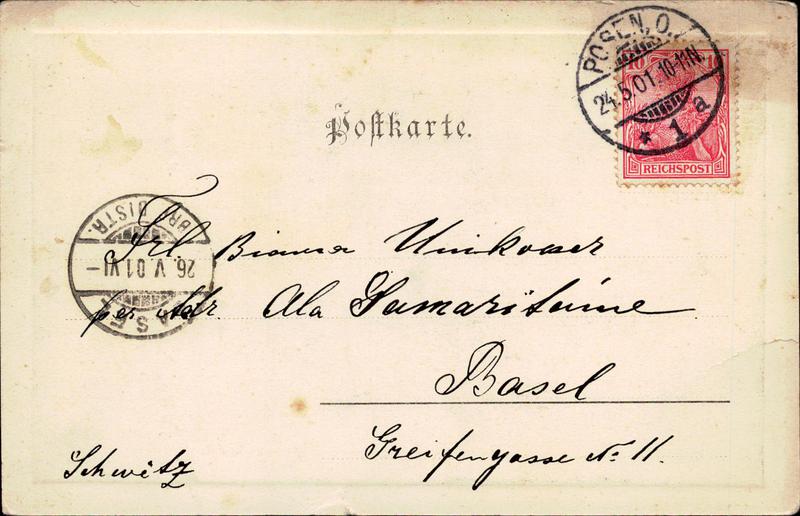 POSEN, O.
24.5.01.10-11N.
* 1 a
10 10
REICHSPOST
Postkarte.
BR. DISTR.
26. V. 01 VI-
BASEL
Frl. Bianca
per Adr. Ala Samaritaine
Basel
Greifengasse No 11.
Schweitz